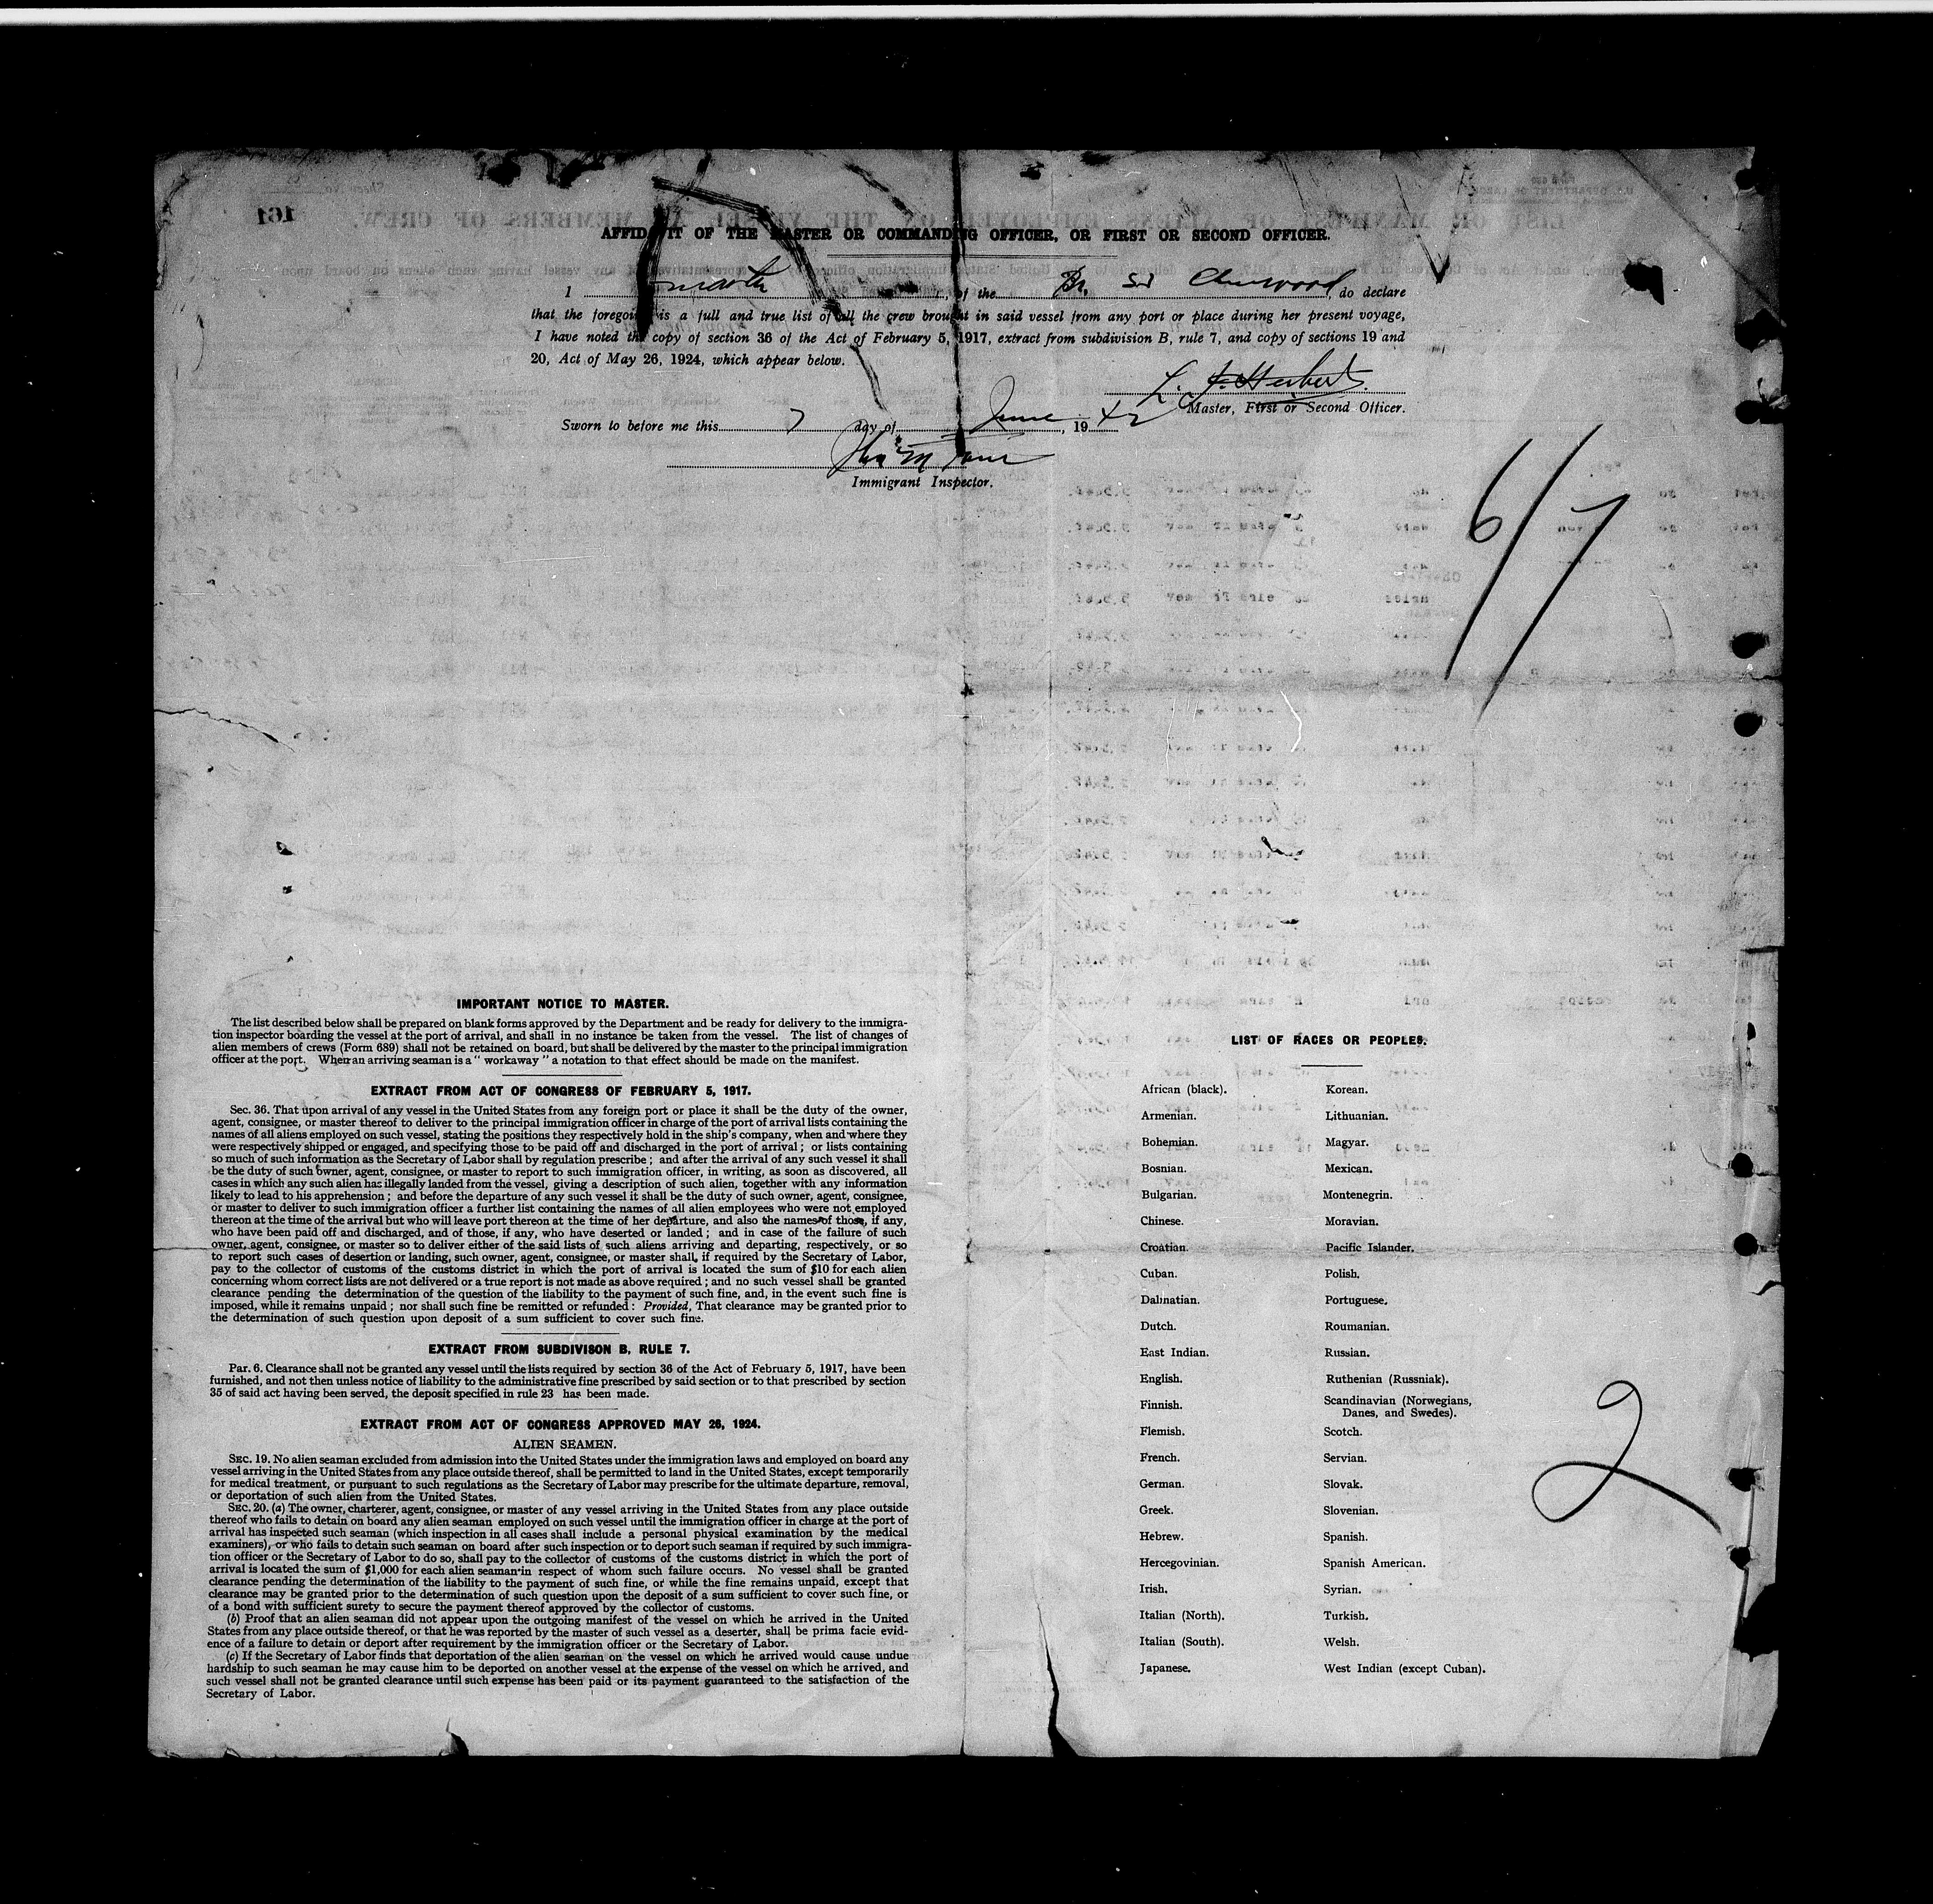 161
AFFIDAVIT OF THE MASTER OR COMMANDING OFFICER, OR FIRST OR SECOND OFFICER.
I master, of the Br. SS, do declare
that the foregoing is a full and true list of all the crew brought in said vessel from any port or place during her present voyage,
I have noted the copy of section 36 of the Act of February 5, 1917, extract from subdivision B, rule 7, and copy of sections 19 and
20, Act of May 26, 1924, which appear below.
L. J. Herbert.
Master, First or Second Officer.
Sworn to before me this 7 day of June, 1942
Immigrant Inspector.
6/7
IMPORTANT NOTICE TO MASTER.
The list described below shall be prepared on blank forms approved by the Department and be ready for delivery to the immigra-
tion inspector boarding the vessel at the port of arrival, and shall in no instance be taken from the vessel. The list of changes of
alien members of crews (Form 689) shall not be retained on board, but shall be delivered by the master to the principal immigration
officer at the port. When an arriving seaman is a " workaway " a notation to that effect should be made on the manifest.
EXTRACT FROM ACT OF CONGRESS OF FEBRUARY 5, 1917.
Sec. 36. That upon arrival of any vessel in the United States from any foreign port or place it shall be the duty of the owner,
agent, consignee, or master thereof to deliver to the principal immigration officer in charge of the port of arrival lists containing the
names of all aliens employed on such vessel, stating the positions they respectively hold in the ship's company, when and where they
were respectively shipped or engaged, and specifying those to be paid off and discharged in the port of arrival ; or lists containing
so much of such information as the Secretary of Labor shall by regulation prescribe ; and after the arrival of any such vessel it shall
be the duty of such owner, agent, consignee, or master to report to such immigration officer, in writing, as soon as discovered, all
cases in which any such alien has illegally landed from the vessel, giving a description of such alien, together with any information
likely to lead to his apprehension ; and before the departure of any such vessel it shall be the duty of such owner, agent, consignee,
or master to deliver to such immigration officer a further list containing the names of all alien employees who were not employed
thereon at the time of the arrival but who will leave port thereon at the time of her departure, and also the names of those, if any,
who have been paid off and discharged, and of those, if any, who have deserted or landed ; and in case of the failure of such
owner, agent, consignee, or master so to deliver either of the said lists of such aliens arriving and departing, respectively, or so
to report such cases of desertion or landing, such owner, agent, consignee, or master shall, if required by the Secretary of Labor,
pay to the collector of customs of the customs district in which the port of arrival is located the sum of $10 for each alien
concerning whom correct lists are not delivered or a true report is not made as above required ; and no such vessel shall be granted
clearance pending the determination of the question of the liability to the payment of such fine, and, in the event such fine is
imposed, while it remains unpaid ; nor shall such fine be remitted or refunded : Provided, That clearance may be granted prior to
the determination of such question upon deposit of a sum sufficient to cover such fine.
EXTRACT FROM SUBDIVISON B, RULE 7.
Par. 6. Clearance shall not be granted any vessel until the lists required by section 36 of the Act of February 5, 1917, have been
furnished, and not then unless notice of liability to the administrative fine prescribed by said section or to that prescribed by section
35 of said act having been served, the deposit specified in rule 23 has been made.
EXTRACT FROM ACT OF CONGRESS APPROVED MAY 26, 1924.
ALIEN SEAMEN.
SEC. 19. No alien seaman excluded from admission into the United States under the immigration laws and employed on board any
vessel arriving in the United States from any place outside thereof, shall be permitted to land in the United States, except temporarily
for medical treatment, or pursuant to such regulations as the Secretary of Labor may prescribe for the ultimate departure, removal,
or deportation of such alien from the United States.
SEC. 20. (a) The owner, charterer, agent, consignee, or master of any vessel arriving in the United States from any place outside
thereof who fails to detain on board any alien seaman employed on such vessel until the immigration officer in charge at the port of
arrival has inspected such seaman (which inspection in all cases shall include a personal physical examination by the medical
examiners), or who fails to detain such seaman on board after such inspection or to deport such seaman if required by such immigra-
tion officer or the Secretary of Labor to do so, shall pay to the collector of customs of the customs district in which the port of
arrival is located the sum of $1,000 for each alien seaman in respect of whom such failure occurs. No vessel shall be granted
clearance pending the determination of the liability to the payment of such fine, or while the fine remains unpaid, except that
clearance may be granted prior to the determination of such question upon the deposit of a sum sufficient to cover such fine, or
of a bond with sufficient surety to secure the payment thereof approved by the collector of customs.
(b) Proof that an alien seaman did not appear upon the outgoing manifest of the vessel on which he arrived in the United
States from any place outside thereof, or that he was reported by the master of such vessel as a deserter, shall be prima facie evid-
ence of a failure to detain or deport after requirement by the immigration officer or the Secretary of Labor.
(c) If the Secretary of Labor finds that deportation of the alien seaman on the vessel on which he arrived would cause undue
hardship to such seaman he may cause him to be deported on another vessel at the expense of the vessel on which he arrived, and
such vessel shall not be granted clearance until such expense has been paid or its payment guaranteed to the satisfaction of the
Secretary of Labor.
LIST OF RACES OR PEOPLES.
African (black). Korean.
Armenian. Lithuanian.
Bohemian. Magyar.
Bosnian. Mexican.
Bulgarian. Montenegrin.
Chinese. Moravian.
Croatian. Pacific Islander.
Cuban. Polish.
Dalmatian. Portuguese.
Dutch. Roumanian.
East Indian. Russian.
English. Ruthenian (Russniak).
Finnish. Scandinavian (Norwegians,
Danes, and Swedes).
Flemish. Scotch.
French. Servian.
German. Slovak.
Greek. Slovenian.
Hebrew. Spanish.
Hercegovinian. Spanish American.
Irish. Syrian.
Italian (North). Turkish.
Italian (South). Welsh.
Japanese. West Indian (except Cuban).
2